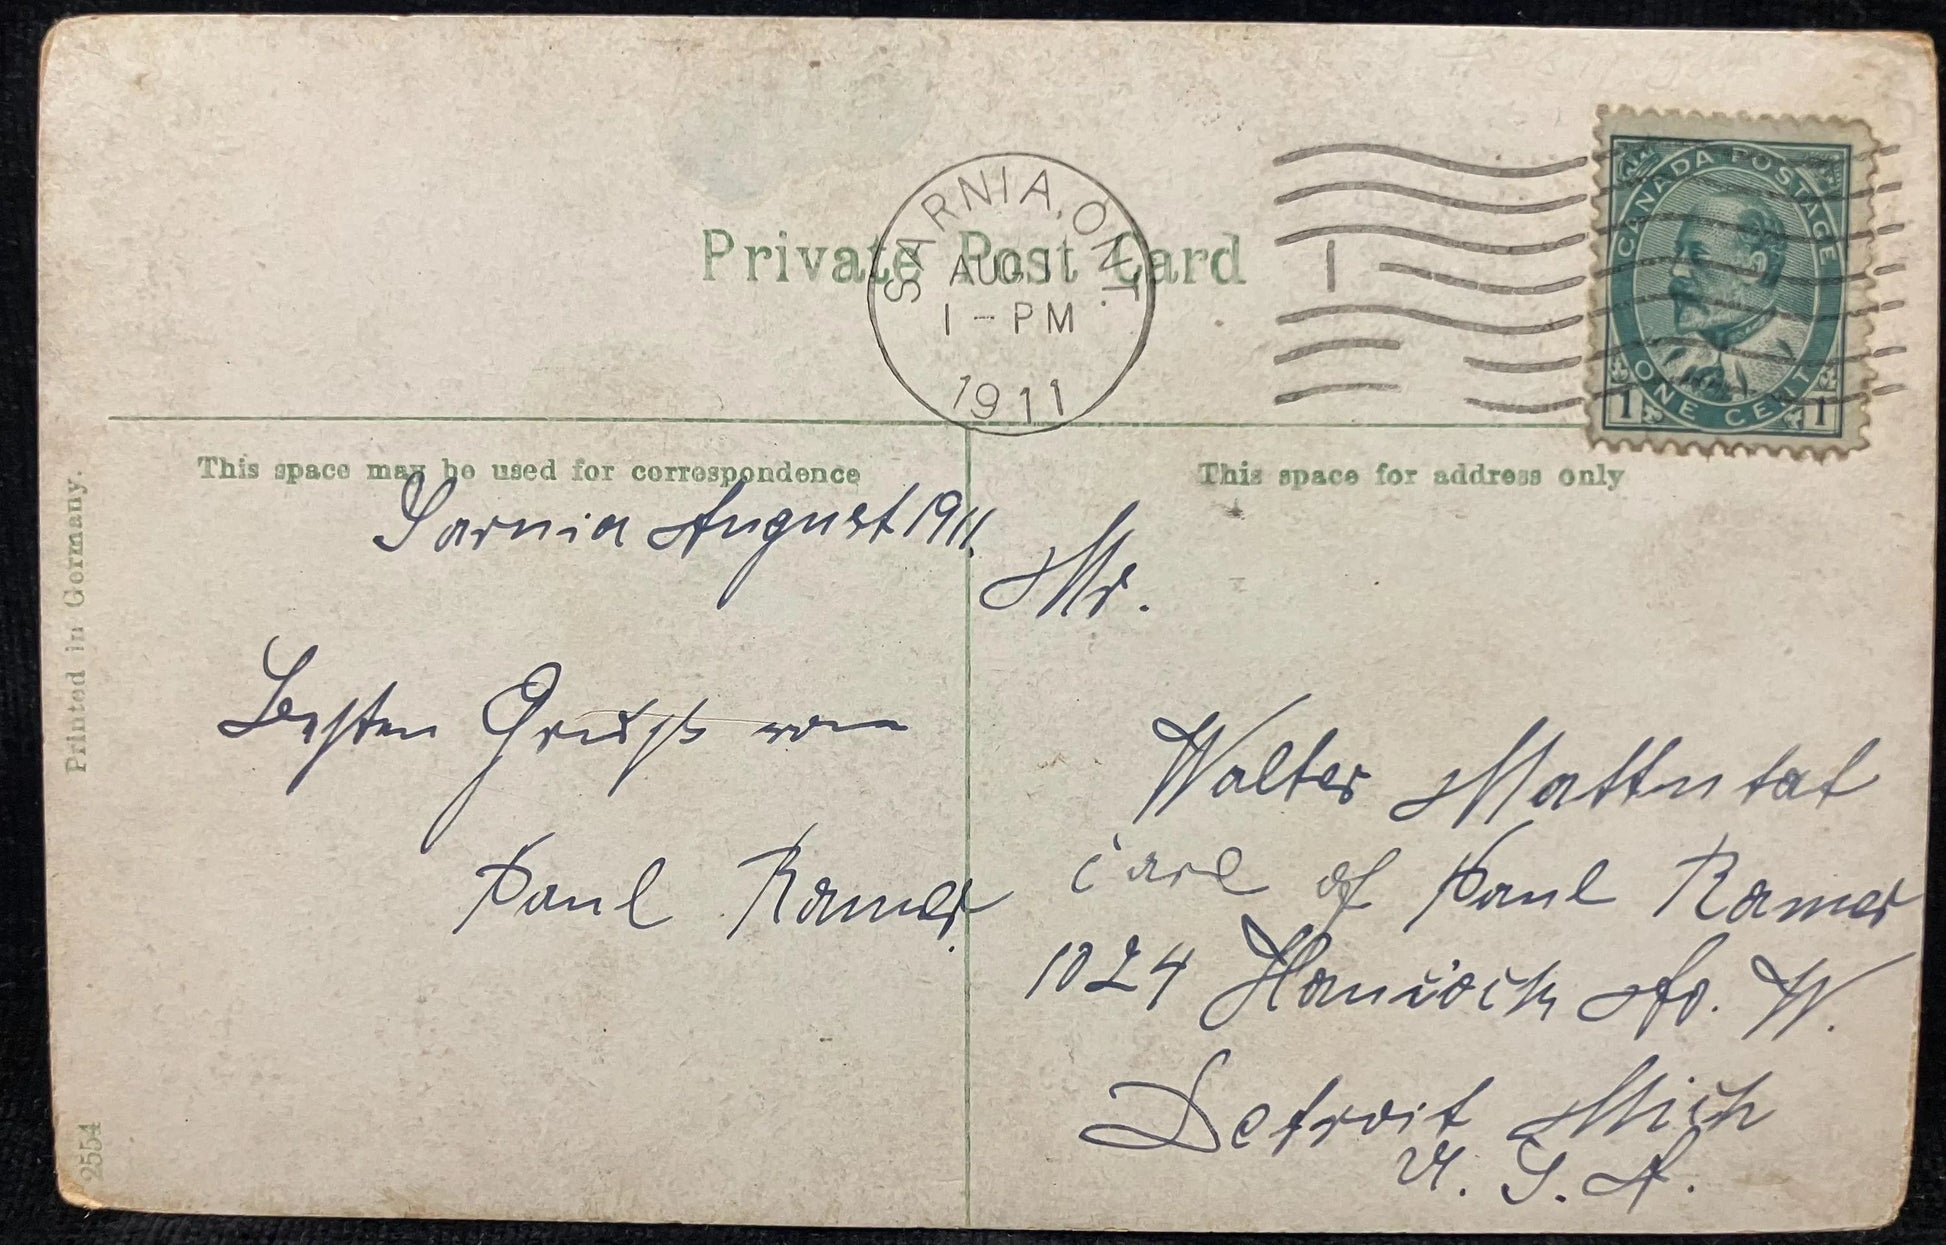 Private Post Card
SARNIA, ONT.
AUG 1
1 - PM
1911
1
CANADA POSTAGE
ONE CENT
1 1
This space may be used for correspondence
Sarnia August 1911.
Besten Gruß von
Paul Ramer.
This space for address only
Mr.
Walter Mattutat
care of Paul Ramer
1024 Hancock Av. W.
Detroit Mich
U. S. A.
Printed in Germany.
2554